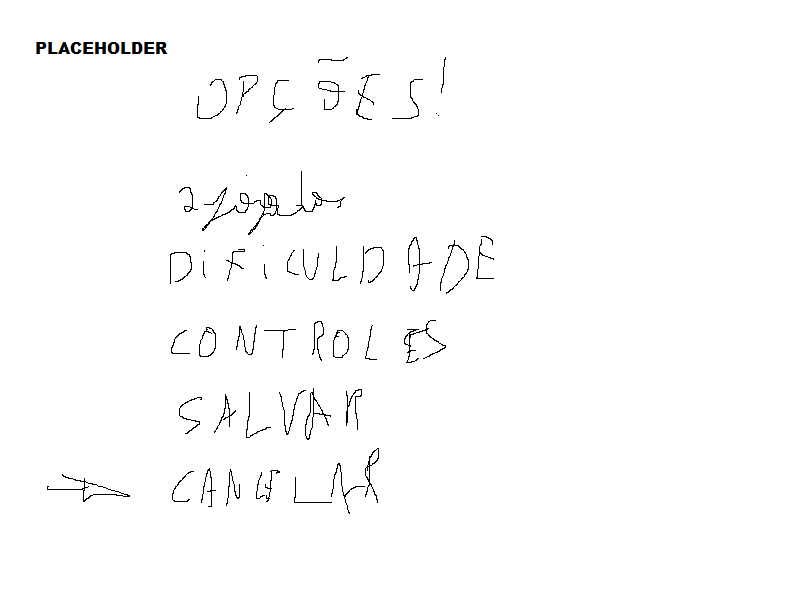 PLACEHOLDER
OPÇÕES!
2 jogador
DIFICULDADE
CONTROLES
SALVAR
CANCELAR